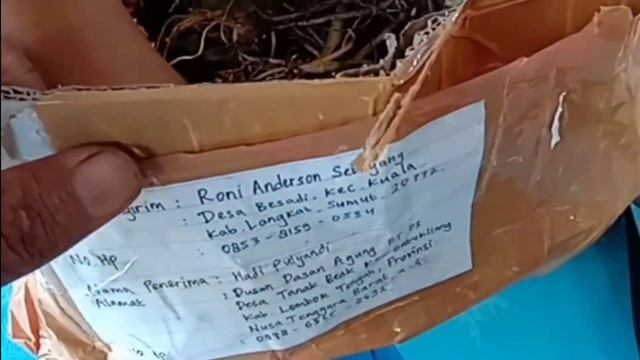 girim : Roni Anderson
: Desa Besadi. Kec. Kuala
Kab. Langkat - Sumut - 20772.
No. Hp : 0853 - 8159 - 0334
Nama Penerima : Hadi Pulyandi
Alamat : Dusun Dasan Agung RT. 05
Desa Tanak Beak
Kab Lombok Tengah, Provinsi
Nusa Tenggara Barat
No Hp